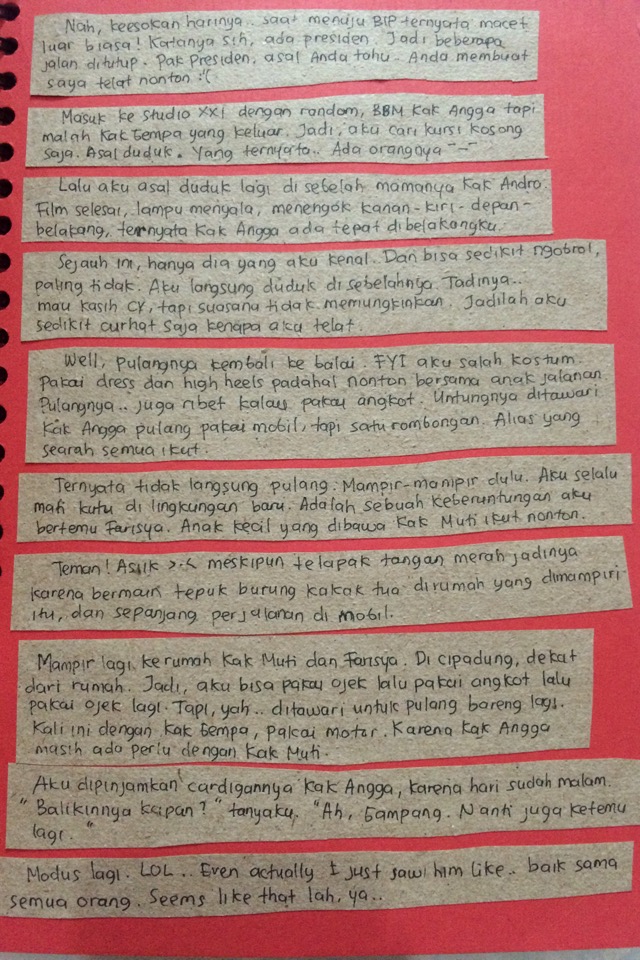 Nah, keesokan harinya.. saat menuju BIP ternyata macet
luar biasa! Katanya sih, ada presiden. Jadi beberapa
jalan ditutup. Pak Presiden, asal Anda tahu. Anda membuat
saya telat nonton :'(
Masuk ke studio XXI dengan random, BBM Kak Angga tapi
malah Kak Gempa yang keluar. Jadi, aku cari kursi kosong
saja. Asal duduk. Yang ternyata.. Ada orangnya -_-
Lalu aku asal duduk lagi di sebelah mamanya Kak Andro.
Film selesai, lampu menyala, menengok kanan-kiri-depan-
belakang, ternyata Kak Angga ada tepat di belakangku.
Sejauh ini, hanya dia yang aku kenal. Dan bisa sedikit ngobrol,
paling tidak. Aku langsung duduk di sebelahnya. Tadinya..
mau kasih CV, tapi suasana tidak memungkinkan. Jadilah aku
sedikit curhat saja kenapa aku telat.
Well, pulangnya kembali ke balai. FYI aku salah kostum.
Pakai dress dan high heels padahal nonton bersama anak jalanan.
Pulangnya.. juga ribet kalau pakai angkot. Untungnya ditawari
Kak Angga pulang pakai mobil, tapi satu rombongan. Alias yang
searah semua ikut.
Ternyata tidak langsung pulang. Mampir-mampir dulu. Aku selalu
mati kutu di lingkungan baru. Adalah sebuah keberuntungan aku
bertemu Farisya. Anak kecil yang dibawa Kak Muti ikut nonton.
Teman! Asiik >.< meskipun telapak tangan merah jadinya
karena bermain tepuk burung kakak tua dirumah yang dimampiri
itu, dan sepanjang perjalanan di mobil.
Mampir lagi kerumah Kak Muti dan Farisya. Di cipadung, dekat
dari rumah. Jadi, aku bisa pakai ojek lalu pakai angkot lalu
pakai ojek lagi. Tapi, yah.. ditawari untuk pulang bareng lagi.
Kali ini dengan Kak Gempa, pakai motor. Karena Kak Angga
masih ada perlu dengan Kak Muti.
Aku dipinjamkan cardigannya Kak Angga, karena hari sudah malam.
"Balikinnya kapan?" tanyaku. "Ah, Gampang. Nanti juga ketemu
lagi."
Modus lagi. LOL.. Even actually I just saw him like.. baik sama
semua orang. Seems like that lah, ya..